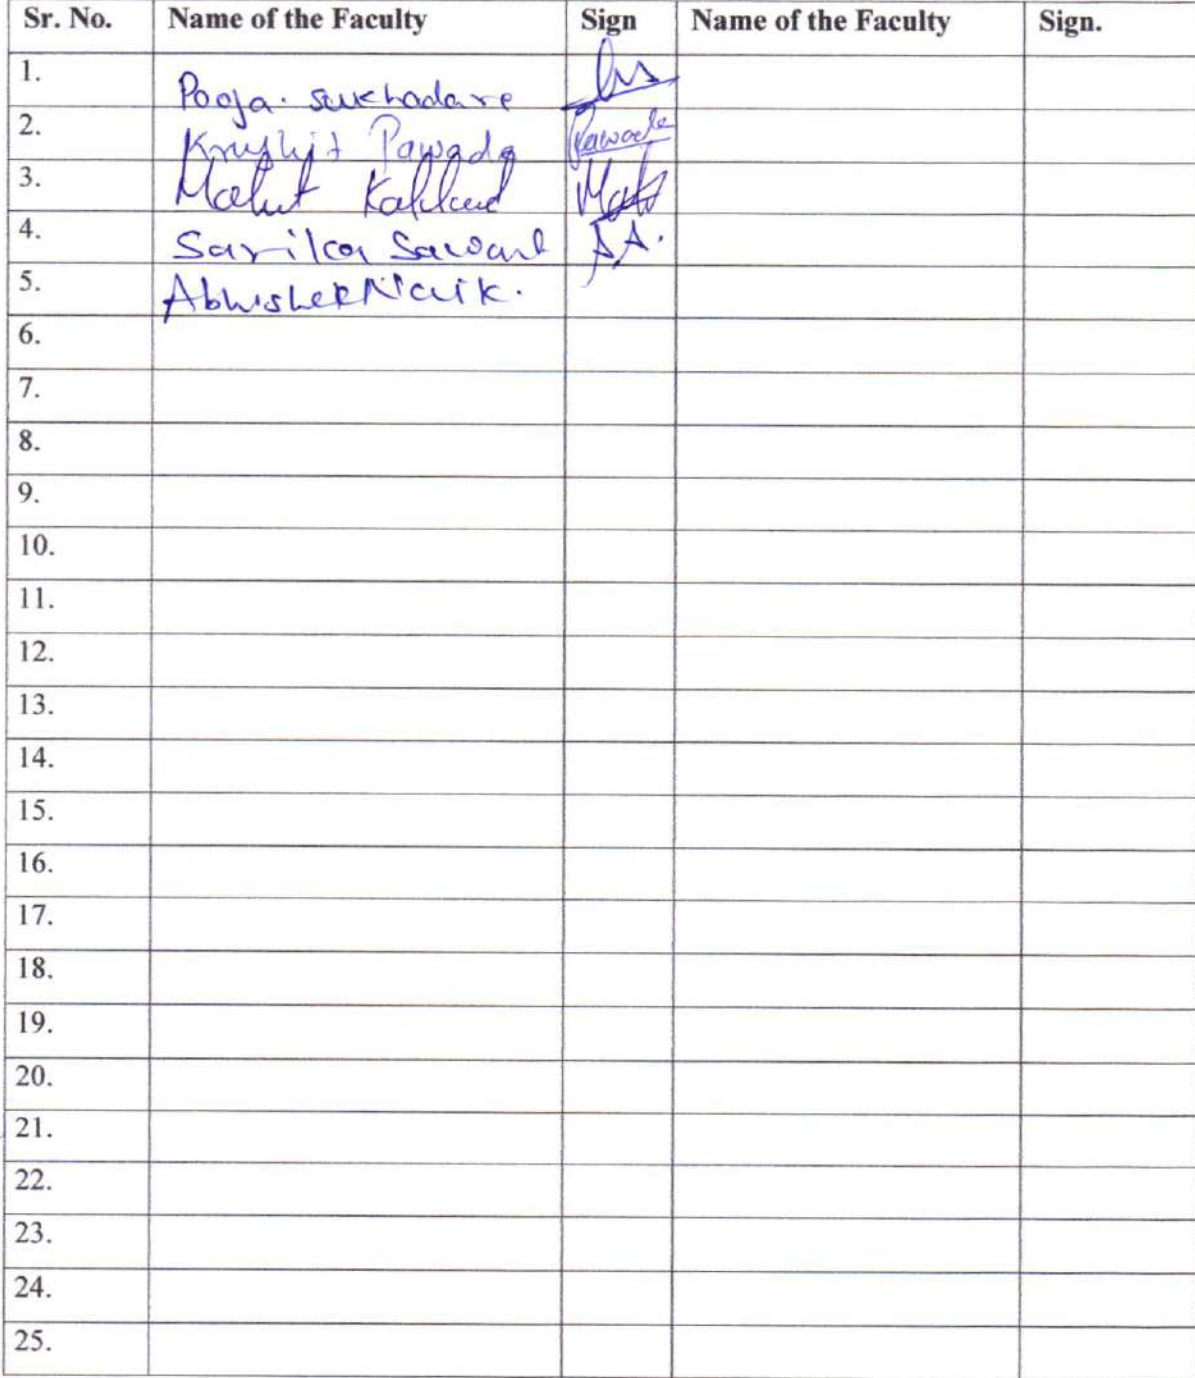 Sr. No. Name of the Faculty Sign Name of the Faculty Sign.
1. Pooja. sukhadare
2. Pawade Pawade
3.
4. Sarika Sawant A.A.
5. Abhishek Naik.
6.
7.
8.
9.
10.
11.
12.
13.
14.
15.
16.
17.
18.
19.
20.
21.
22.
23.
24.
25.